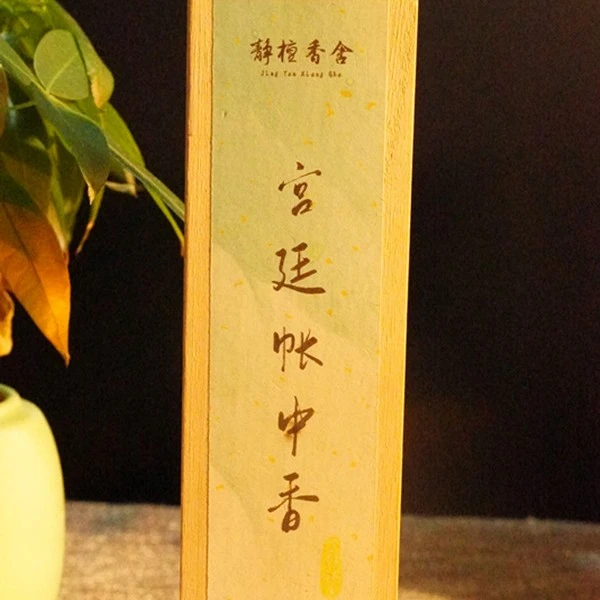 静檀香舍
Jing Tan Xiang She
宫廷帐中香